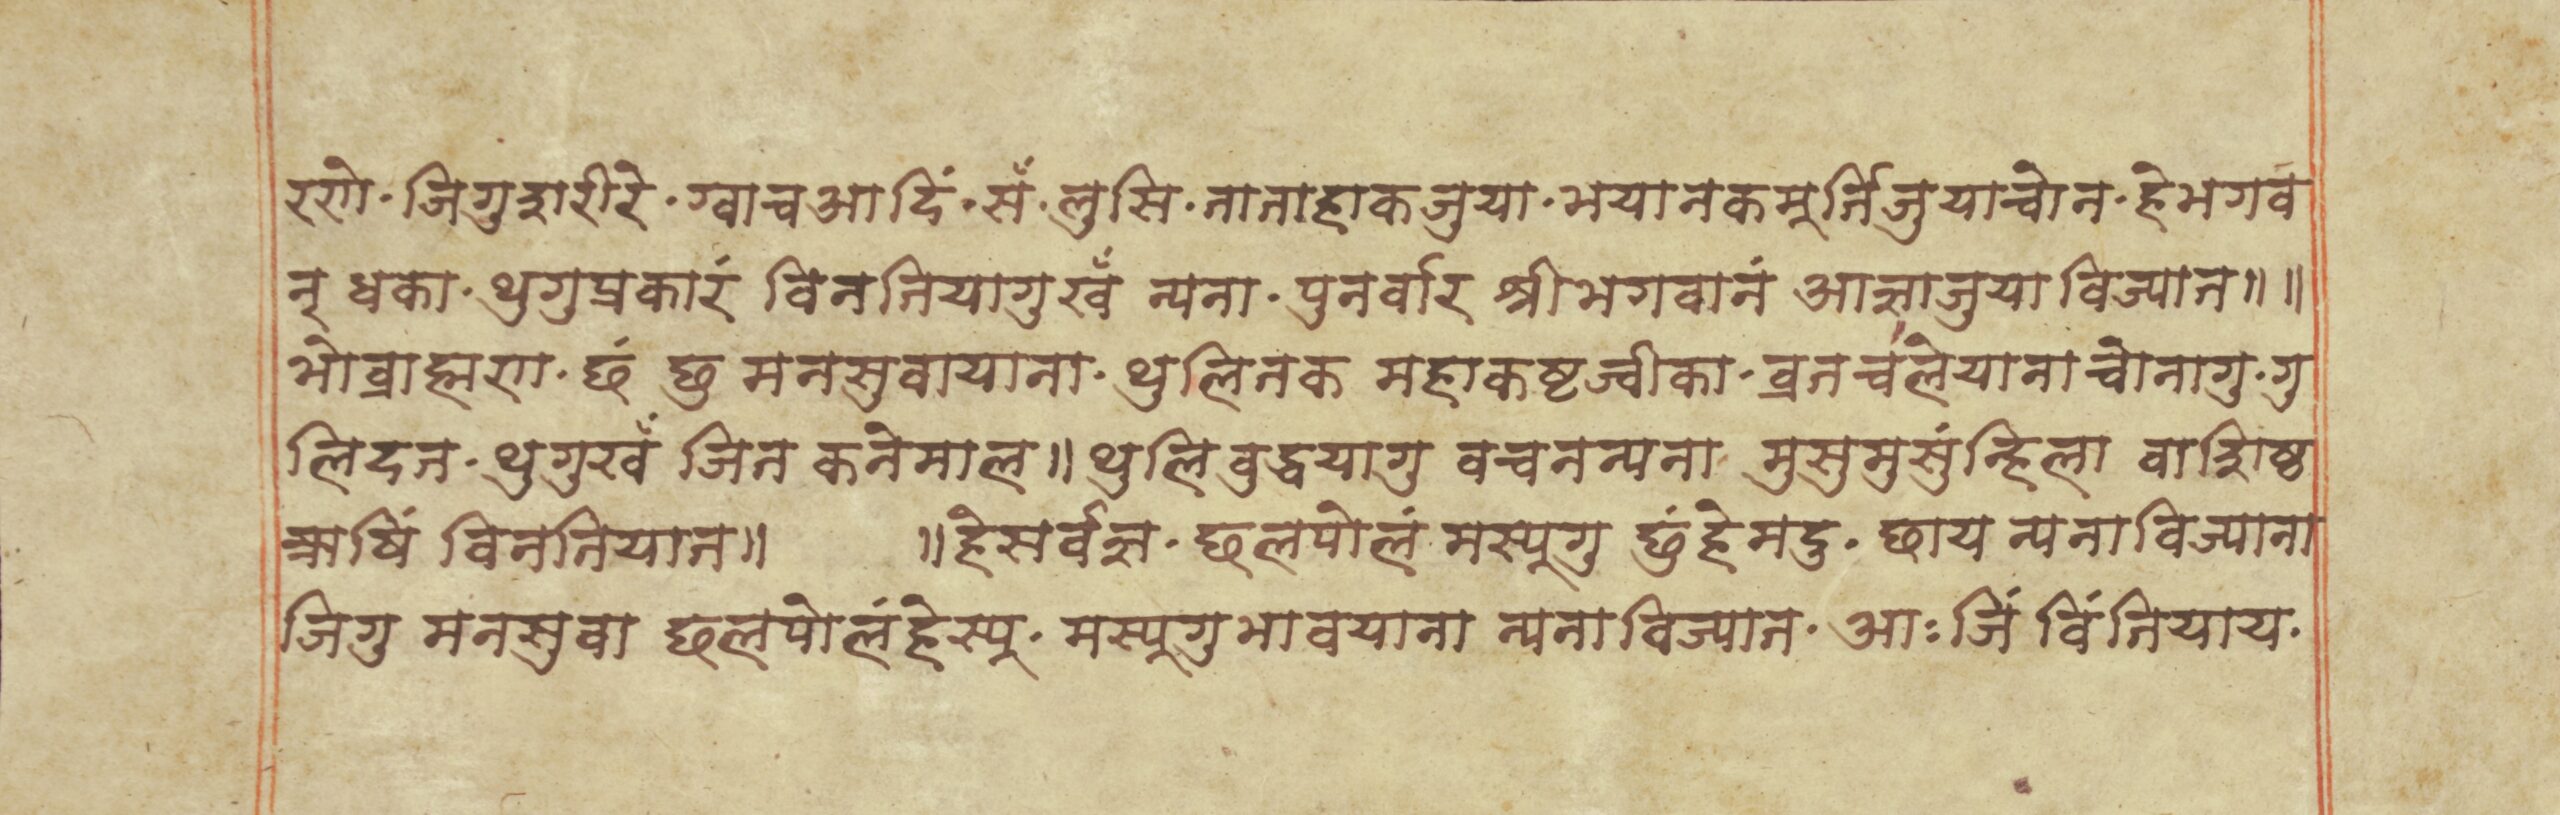 रणे· जिगुशरीरे· ग्वाचआदिं· सँ· लुसि· नानाहाकजुया· भयानकमूर्त्तिजुयाचोन· हेभगव
न् धका· थुगुप्रकारं विनतियागुखँ न्यना· पुनर्वार श्रीभगवानं आज्ञाजुया विज्यात॥ ॥
भोव्राह्मण· छं छु मनसुवायाना· थुलितक महाकष्टज्वीका· व्रतचलेयानाचोनागु· गु
लिदत· थुगुखँ जित कनेमाल॥ थुलि वुद्धयागु वचनन्यना मुसुमुसुंन्हिला वाशिष्ठ
ऋषिं विनतियात॥ ॥हेसर्वज्ञ· छलपोलं मस्यूगु छुंहेमदु· छाय न्यनाविज्याना
जिगु मनसुवा छलपोलंहेस्यू· मस्यूगुभावयाना न्यनाविज्यात· आः जिं विंतियाय·